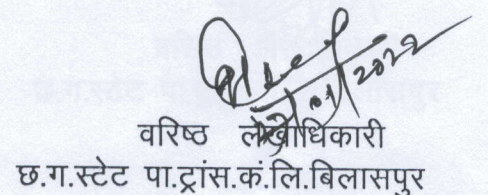 वरिष्ठ लेखाधिकारी
छ.ग.स्टेट पा.ट्रांस.कं.लि.बिलासपुर